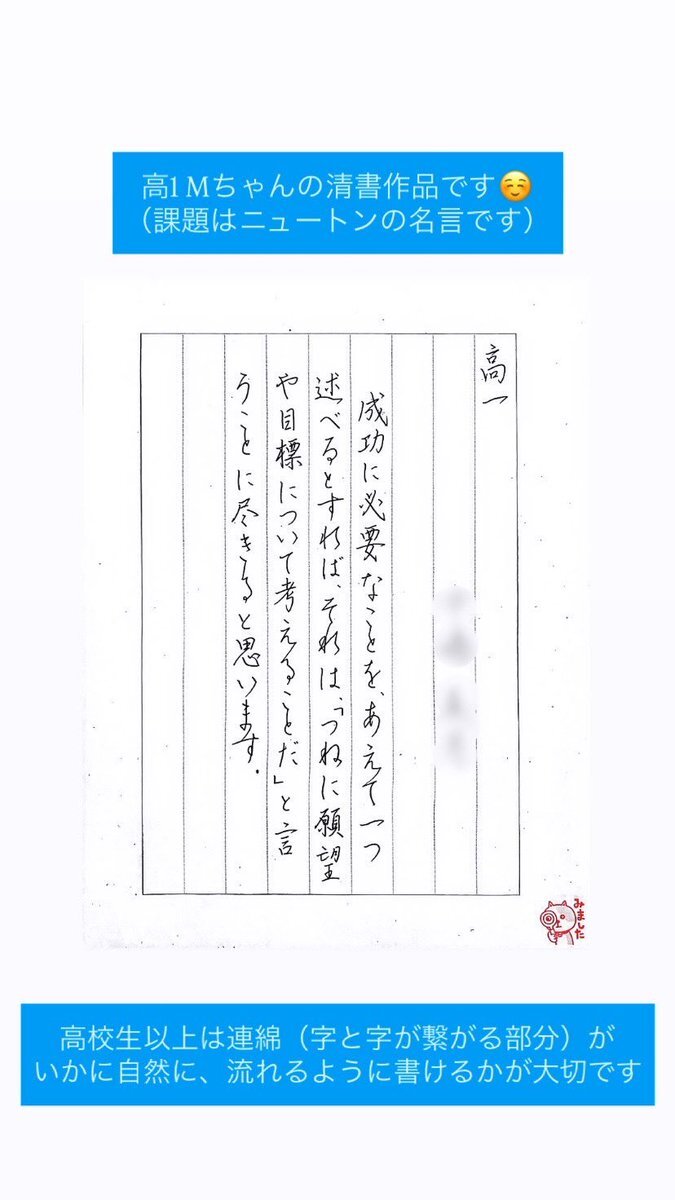 高1 Mちゃんの清書作品です☺️
（課題はニュートンの名言です）
高一
成功に必要なことを、あえて一つ
述べるとすれば、それは、「つねに願望
や目標について考えることだ」と言
うことに尽きると思います。
みました
高校生以上は連綿（字と字が繋がる部分）が
いかに自然に、流れるように書けるかが大切です